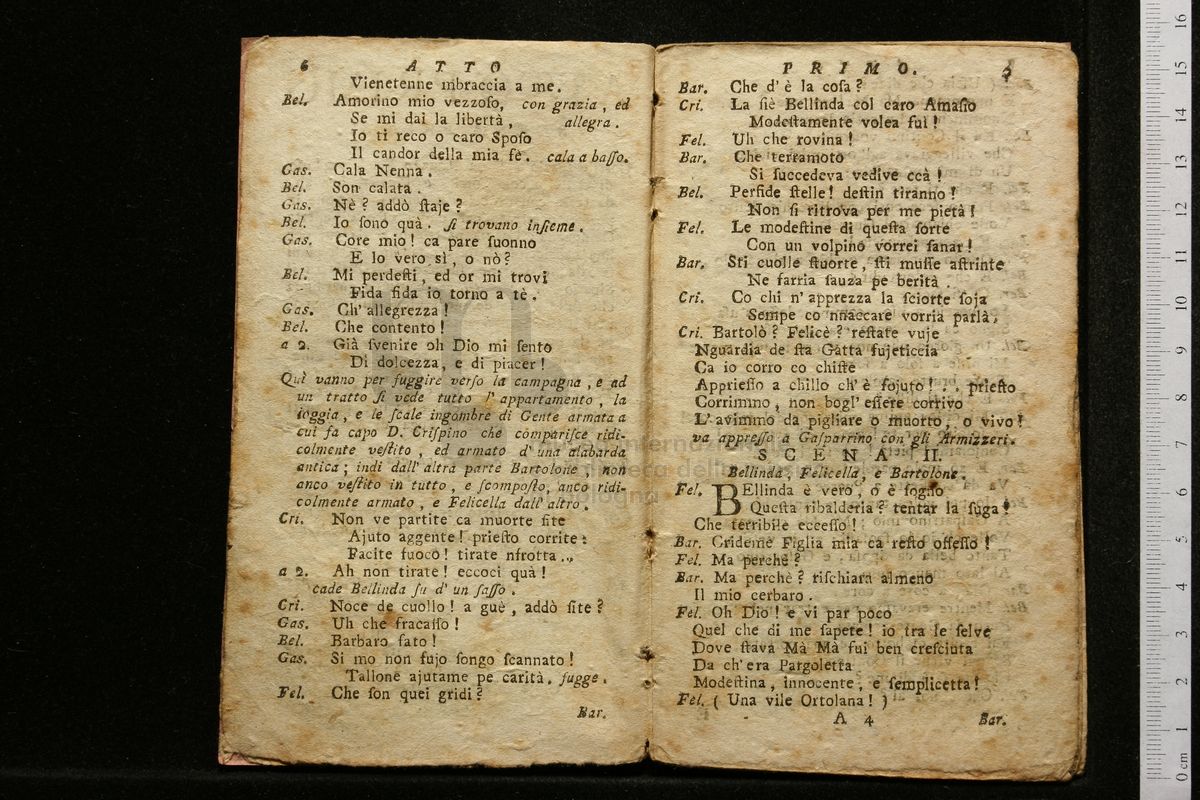 6 ATTO
Vienetenne mbraccia a me.
Bel. Amorino mio vezzoſo, con grazia, ed
Se mi dai la libertà, allegra.
Io ti reco o caro Spoſo
Il candor della mia fè. cala a baſſo.
Gas. Cala Nenna.
Bel. Son calata.
Gas. Nè? addò ſtaje?
Bel. Io ſono quà. ſi trovano inſieme.
Gas. Core mio! ca pare ſuonno
E lo vero sì, o nò?
Bel. Mi perdeſti, ed or mi trovi
Fida fida io torno a tè.
Gas. Ch' allegrezza!
Bel. Che contento!
a 2. Già ſvenire oh Dio mi ſento
Di dolcezza, e di piacer!
Quì vanno per fuggire verſo la campagna, e ad
un tratto ſi vede tutto l' appartamento, la
loggia, e le ſcale ingombre di Gente armata a
cui fa capo D. Criſpino che compariſce ridi-
colmente veſtito, ed armato d' una alabarda
antica; indi dall' altra parte Bartolone, non
anco veſtito in tutto, e ſcompoſto, anco ridi-
colmente armato, e Felicella dall' altro.
Cri. Non ve partite ca muorte ſite
Ajuto aggente! prieſto corrite:
Facite fuoco! tirate nfrotta..
a 2. Ah non tirate! eccoci quà!
cade Bellinda ſu d' un ſaſſo.
Cri. Noce de cuollo! a guè, addò ſite?
Gas. Uh che fracaſſo!
Bel. Barbaro fato!
Gas. Si mo non fujo ſongo ſcannato!
Tallone ajutame pe carità. fugge.
Fel. Che ſon quei gridi?
Bar.
PRIMO.
Bar. Che d' è la coſa?
Cri. La ſiè Bellinda col caro Amaſio
Modeſtamente volea fuì!
Fel. Uh che rovina!
Bar. Che terramoto
Si ſuccedeva vedive ccà!
Bel. Perfide ſtelle! deſtin tiranno!
Non ſi ritrova per me pietà!
Fel. Le modeſtine di queſta ſorte
Con un volpino vorrei ſanar!
Bar. Sti cuolle ſtuorte, ſti muſſe aſtrinte
Ne farria ſauza pe berità.
Cri. Co chi n' apprezza la ſciorte ſoja
Sempe co nnaccare vorria parlà.
Cri. Bartolò? Felicè? reſtate vuje
Nguardia de ſta Gatta ſujeticcia
Ca io corro co chiſte
Apprieſſo a chillo ch' è fojuto!.. prieſto
Corrimmo, non bogl' eſſere corrivo
L' avimmo da pigliare o muorto, o vivo!
va appreſſo a Gaſparrino con gli Armizzeri.
SCENA II.
Bellinda, Felicella, e Bartolone.
Fel. BEllinda è vero, o è ſogno
Queſta ribalderia? tentar la fuga!
Che terribile ecceſſo!
Bar. Grideme Figlia mia ca reſto offeſſo!
Fel. Ma perchè?
Bar. Ma perchè? riſchiara almeno
Il mio cerbaro.
Fel. Oh Dio! e vi par poco
Quel che di me ſapete! io tra le ſelve
Dove ſtava Mà Mà fui ben creſciuta
Da ch' era Pargoletta
Modeſtina, innocente, e ſemplicetta!
Fel. ( Una vile Ortolana! )
A 4 Bar.